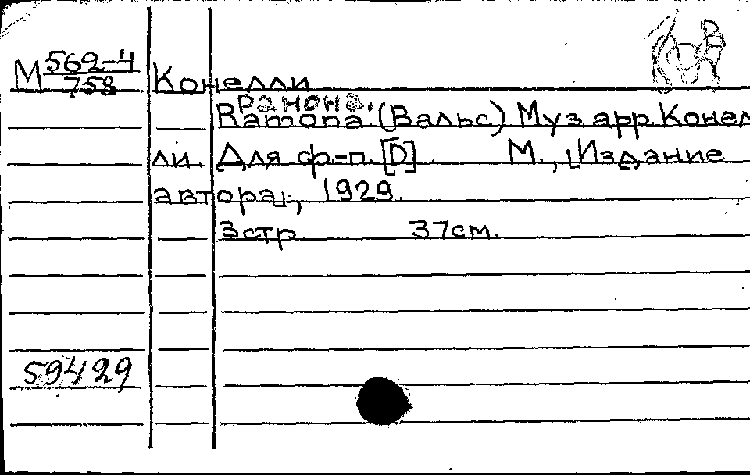 М 562-4
758
Конелли
Рамона.
Ramona. (Вальс) Муз арр. Конел
ли. Для ф-п. [D] М., [Издание
автора], 1929.
3стр 37см.
59429